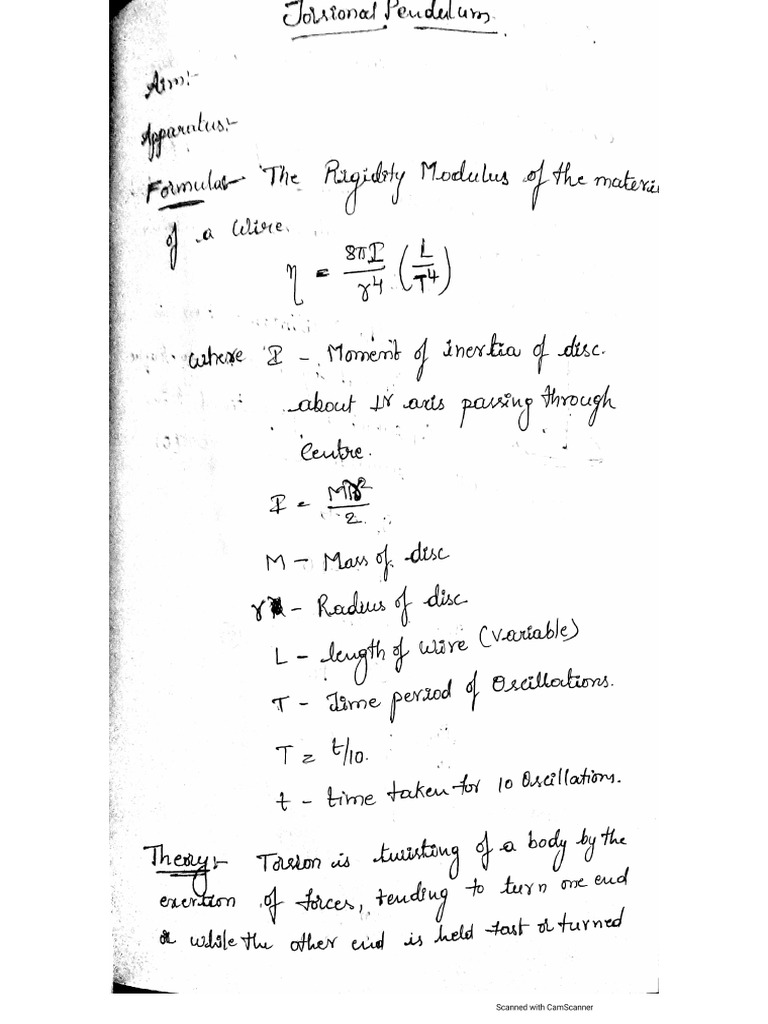 Torsional Pendulum.
Aim:-
Apparatus:-
Formula:- The Rigidity Modulus of the materi
of a wire.
η = 8πI/r⁴ (L/T⁴)
where I - Moment of inertia of disc.
about ⊥r axis passing through
Centre.
I = MR²/2.
M - Mass of disc
r - Radius of disc
L - length of wire (variable)
T - Time period of Oscillations.
T = t/10.
t - time taken for 10 Oscillations.
Theory:- Torsion is twisting of a body by the
exertion of forces, tending to turn one end
while the other end is held fast or turned
Scanned with CamScanner